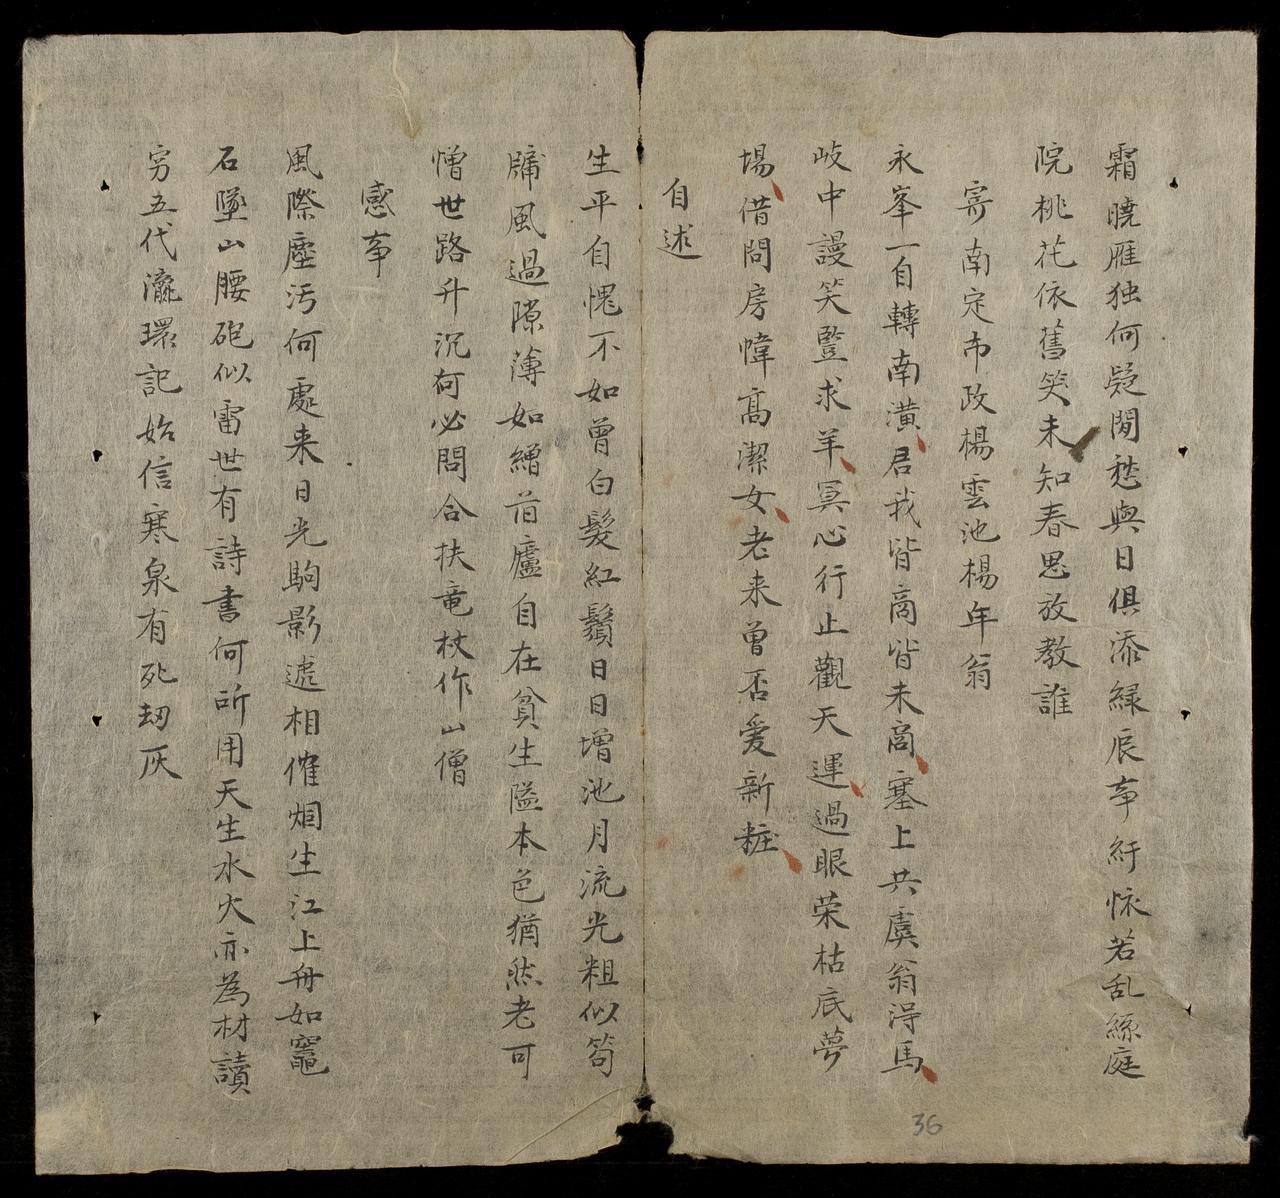 霜曉雁独何疑閒愁與日俱添緑辰亊紆懐若乱絲庭
院桃花依舊笑未知春思放教誰
寄南定布政楊雲池楊年翁
永峯一自轉南潢君我皆商皆未啇塞上共虞翁淂馬
岐中謾笑豎求羊冥心行止觀天運過眼荣枯底夢
場借問房幃髙潔女老来曾否爱新粧
自述
生平自愧不如曾白髮紅鬚日日增池月流光粗似笱
牗風過隙薄如繒首廬自在貧生隘本色猶然老可
憎世路升沉何必問合扶竜杖作山僧
感亊
風際塵污何處来日光駒影遞相催烟生江上舟如竈
石墜山腰砲似雷世有詩書何所用天生水火亦為材讀
穷五代瀛環記始信寒泉有死刼灰
36